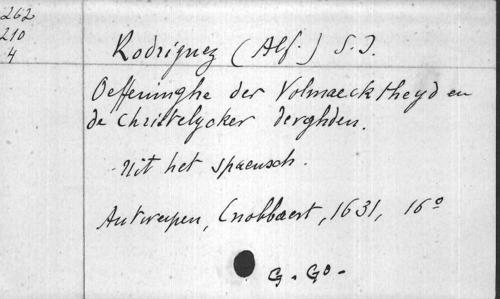 262
210
4
Rodriguez (Alf.) S.J.
Oeffeninghe der Volmaecktheyd en
de Christelycker deughden.
Uit het spaensch.
Antwerpen, Cnobbaert, 1631, 16°
G. G° -